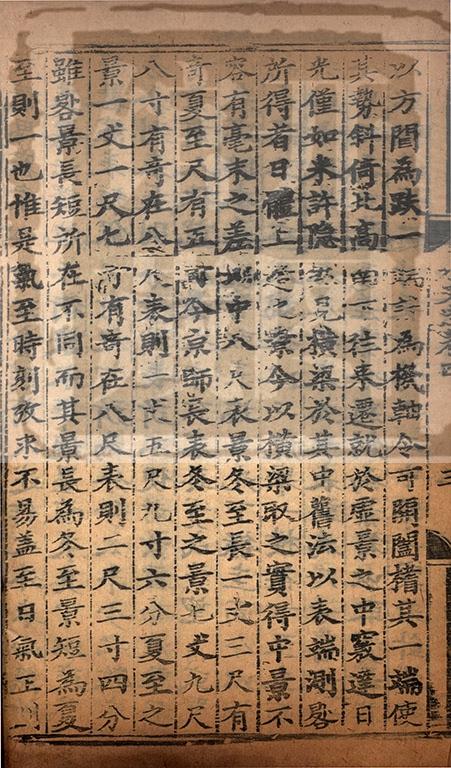 以方閭為趺一端設為機軸令可開闔榰其一端使
其勢斜倚北高南下往来遷就於虛景之中竅達日
光僅如米許隱然見橫梁於其中舊法以表端測晷
所得者日體上邊之景今以橫梁取之實得中景不
容有毫末之差地中八尺表景冬至長一丈三尺有
奇夏至尺有五寸今京師長表冬至之景七丈九尺
八寸有奇在八尺表則一丈五尺九寸六分夏至之
景一丈一尺七寸有奇在八尺表則二尺三寸四分
雖晷景長短所在不同而其景長為冬至景短為夏
至則一也惟是氣至時刻攷求不易盖至日氣正則